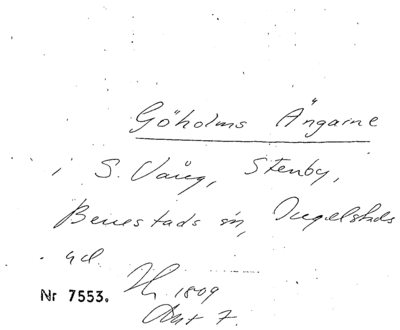 Göholms Ängarne
i S. Vång, Stenby,
Benestads sn, Ingelstads
hd.
Nr 7553.
1809
Akt 7.